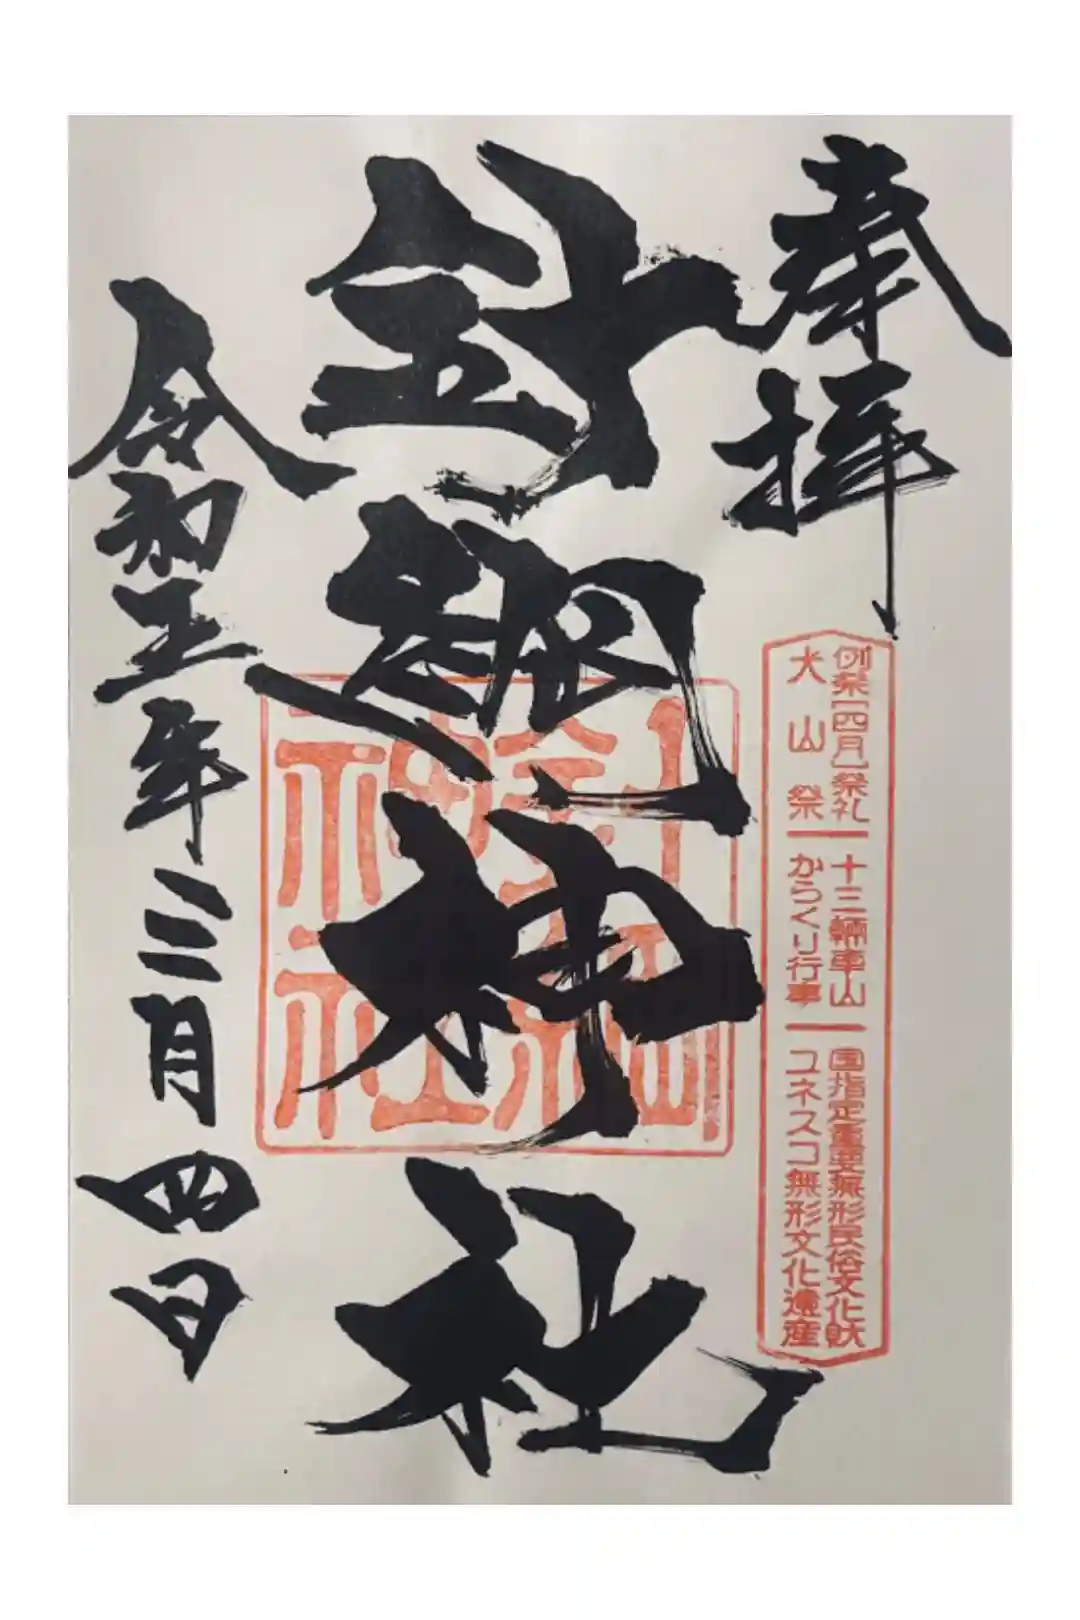 奉拝
例祭[四月]祭礼 十三輛車山 国指定重要無形民俗文化財
犬山祭 からくり行事 ユネスコ無形文化遺産
針綱神社
針綱
神社
令和五年三月四日